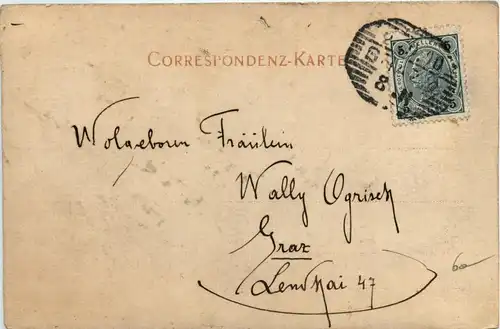 CORRESPONDENZ-KARTE
Wolgeboren Fräulein
Wally Ogrisek
Graz
Lendkai 47
60